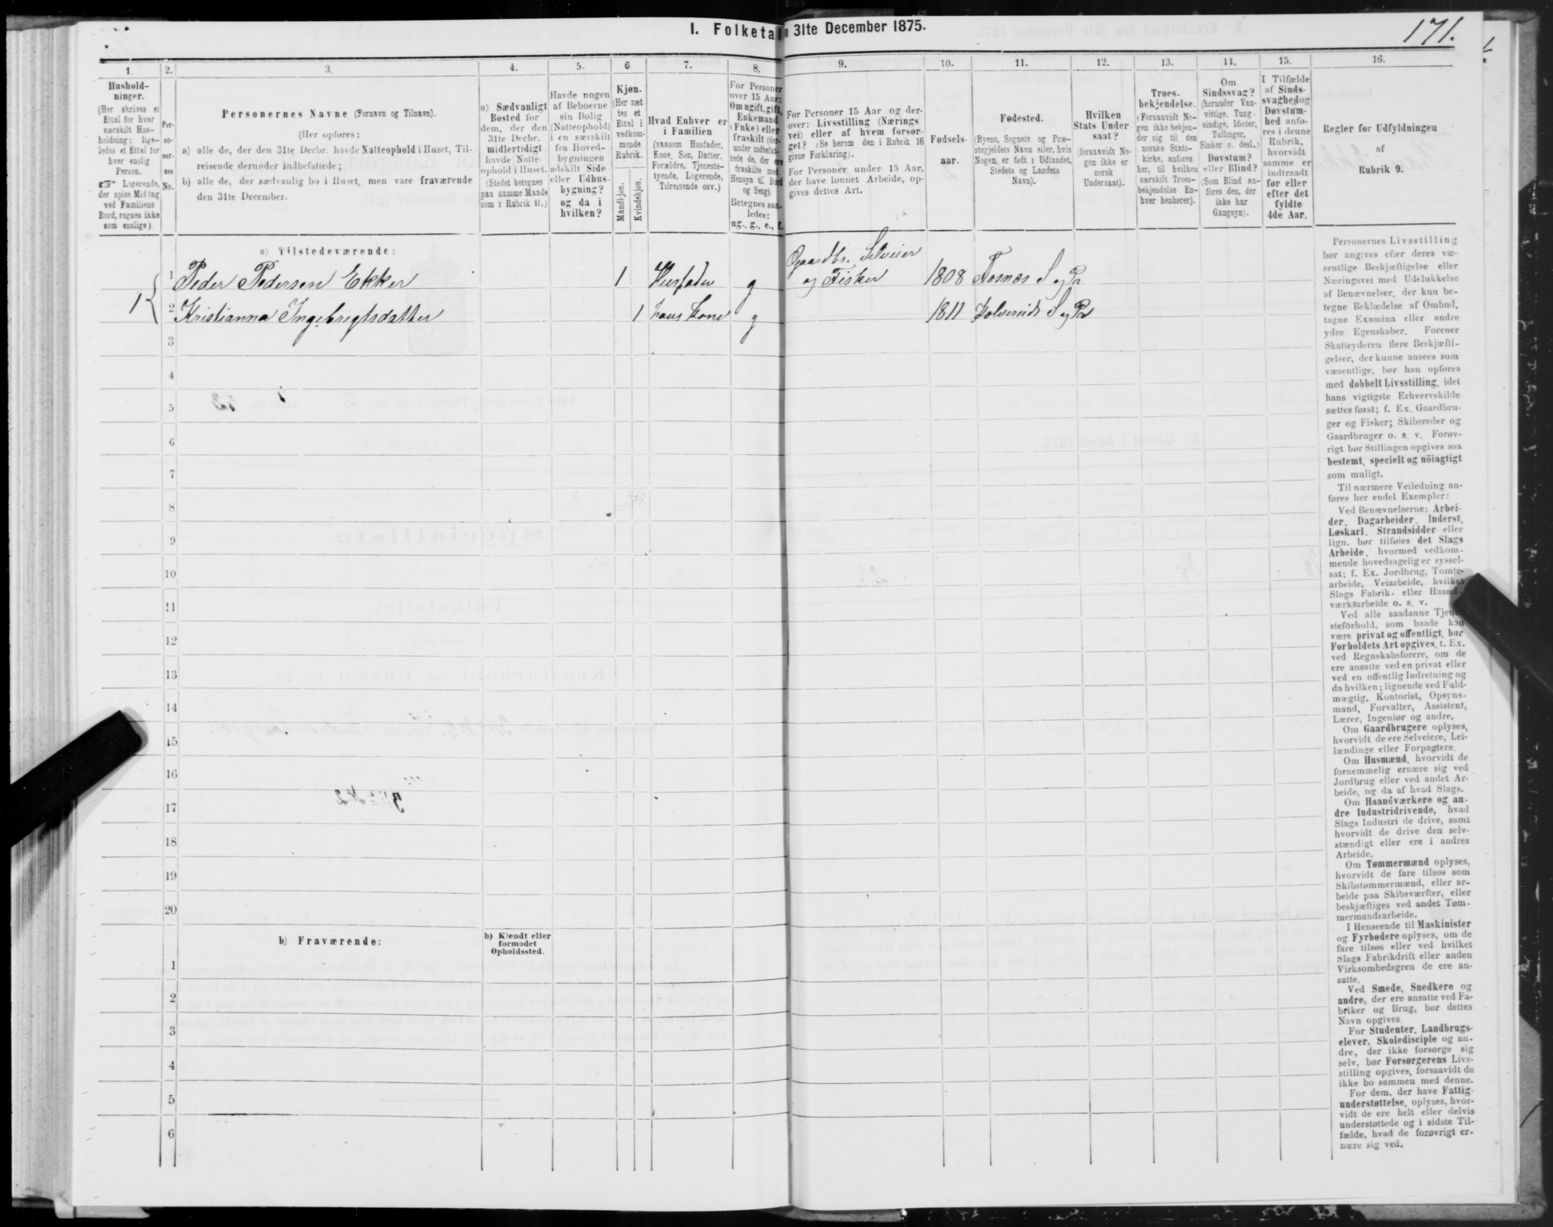 171.
1. Folketal 31te December 1875.
1
Hushold-
ninger.
(Her skrives et
Ettal for hver
særskilt Hus-
holdning; lige-
ledes et Ettal for
hver enslig
Person.
☞ Logerende,
der spise Middag
ved Familiens
Bord, regnes ikke
som enslige).
2.
Per-
so-
ner-
nes
No.
3.
Personernes Navne (Fornavn og Tilnavn).
(Her opføres:
a) alle de, der den 31te Decbr. havde Natteophold i Huset, Til-
reisende derunder indbefattede;
b) alle de, der sædvanlig bo i Huset, men vare fraværende
den 31te December.
4.
a) Sædvanligt
Bosted for
dem, der den
31te Decbr.
midlertidigt
havde Natte-
ophold i Huset.
(Stedet betegnes
paa samme Maade
som i Rubrik 11.)
5.
Havde nogen
af Beboerne
sin Bolig
(Natteophold)
i en særskilt
fra Hoved-
bygningen
adskilt Side
eller Udhus-
bygning?
og da i
hvilken?
6
Kjøn.
(Her sæt
tes et
Ettal i
vedkom-
mende
Rubrik.
Mandkjøn.
Kvindekjøn.
7.
Hvad Enhver er
i Familien
(saasom Husfader,
Kone, Søn, Datter,
Forældre, Tjeneste-
tyende, Logerende,
Tilreisende osv.)
8.
For Personer
over 15 Aar:
Om ugift, gift,
Enkemand
(Enke) eller
fraskilt
Betegnes saa-
ledes:
ug., g., e., f.
9.
For Personer 15 Aar og der-
over: Livsstilling (Nærings
vei) eller af hvem forsør-
get? (Se herom den i Rubrik 16
givne Forklaring).
For Personer under 15 Aar,
der have lønnet Arbeide, op-
gives dettes Art.
10.
Fødsels-
aar.
11.
Fødested.
(Byens, Sognets og Præ-
stegjeldets Navn eller, hvis
Nogen er født i Udlandet,
Stedets og Landets
Navn).
12.
Hvilken
Stats Under
saat?
(forsaavidt No-
gen ikke er
norsk
Undersaat).
13.
Troes-
bekjendelse.
(Forsaavidt No-
gen ikke bekjen-
der sig til den
norske Stats-
kirke, anføres
her, til hvilken
særskilt Troes-
bekjendelse En-
hver henhører).
14.
Om
Sindssvag?
(herunder Van-
vittige, Tung-
sindige, Idioter,
Tullinger,
Sinker o. desl.)
Døvstum?
eller Blind?
(Som Blind an-
føres den, der
ikke har
Gangsyn).
15.
I Tilfælde
af Sinds-
svaghed og
Døvstum-
hed anfø-
res i denne
Rubrik,
hvorvidt
samme er
indtraadt
før eller
efter det
fyldte
4de Aar.
16.
Regler for Udfyldningen
af
Rubrik 9.
a) Tilstedeværende:
1 { 1 Peder Pedersen Ekker 1 Husfader g Gaardbr. Selveier og Fisker 1808 Fosnæs S og Pr
2 Kristianna Ingebrigtsdatter 1 hans Kone g 1811 Kolvereids S og Pr
3
4
5
6
7
8
9
10
11
12
13
14
15
16
17
18
19
20
b) Fraværende:
b) Kjendt eller
formodet
Opholdssted.
1
2
3
4
5
6
Personernes Livsstilling
bør angives efter deres væ-
sentlige Beskjæftigelse eller
Næringsvei med Udelukkelse
af Benævnelser, der kun be-
tegne Beklædelse af Ombud,
tagne Examina eller andre
ydre Egenskaber. Forener
Skatteyderen flere Beskjæfti-
gelser, der kunne ansees som
væsentlige, bør han opføres
med dobbelt Livsstilling, idet
hans vigtigste Erhvervskilde
sættes først; f. Ex. Gaardbru-
ger og Fisker; Skibsreder og
Gaardbruger o. s. v. Forøv-
rigt bør Stillingen opgives saa
bestemt, specielt og nöiagtigt
som muligt.
Til nærmere Veiledning an-
føres her endel Exempler:
Ved Benævnelserne: Arbei-
der, Dagarbeider, Inderst,
Løskarl, Strandsidder eller
lign. bør tilføies det Slags
Arbeide, hvormed vedkom-
mende hovedsagelig er syssel-
sat; f. Ex. Jordbrug, Tomte-
arbeide, Veiarbeide, hvilket
Slags Fabrik- eller Haand-
værksarbeide o. s. v.
Ved alle saadanne Tjene-
steforhold, som baade kan
være privat og offentligt, bør
Forholdets Art opgives, f. Ex.
ved Regnskabsførere, om de
ere ansatte ved en privat eller
ved en offentlig Indretning og
da hvilken; lignende ved Fuld-
mægtig, Kontorist, Opsyns-
mand, Forvalter, Assistent,
Lærer, Ingeniør og andre.
Om Gaardbrugere oplyses,
hvorvidt de ere Selveiere, Lei-
lændinge eller Forpagtere.
Om Husmænd, hvorvidt de
fornemmelig ernære sig ved
Jordbrug eller ved andet Ar-
beide, og da af hvad Slags.
Om Haandværkere og an-
dre Industridrivende, hvad
Slags Industri de drive, samt
hvorvidt de drive den selv-
stændigt eller ere i andres
Arbeide.
Om Tømmermænd oplyses,
hvorvidt de fare tilsøs som
Skibstømmermænd, eller ar-
beide paa Skibsværfter, eller
beskjæftiges ved andet Tøm-
mermandsarbeide.
I Henseende til Maskinister
og Fyrbødere oplyses, om de
fare tilsøs eller ved hvilket
Slags Fabrikdrift eller anden
Virksomhedsgren de ere an-
satte.
Ved Smede, Snedkere og
andre, der ere ansatte ved Fa-
briker og Brug, bør dettes
Navn opgives.
For Studenter, Landbrugs-
elever, Skoledisciple og an-
dre, der ikke forsørge sig
selv, bør Forsørgerens Livs-
stilling opgives, forsaavidt de
ikke bo sammen med denne.
For dem, der have Fattig-
understøttelse, oplyses, hvor-
vidt de ere helt eller delvis
understøttede og i sidste Til-
fælde, hvad de forøvrigt er-
nære sig ved.